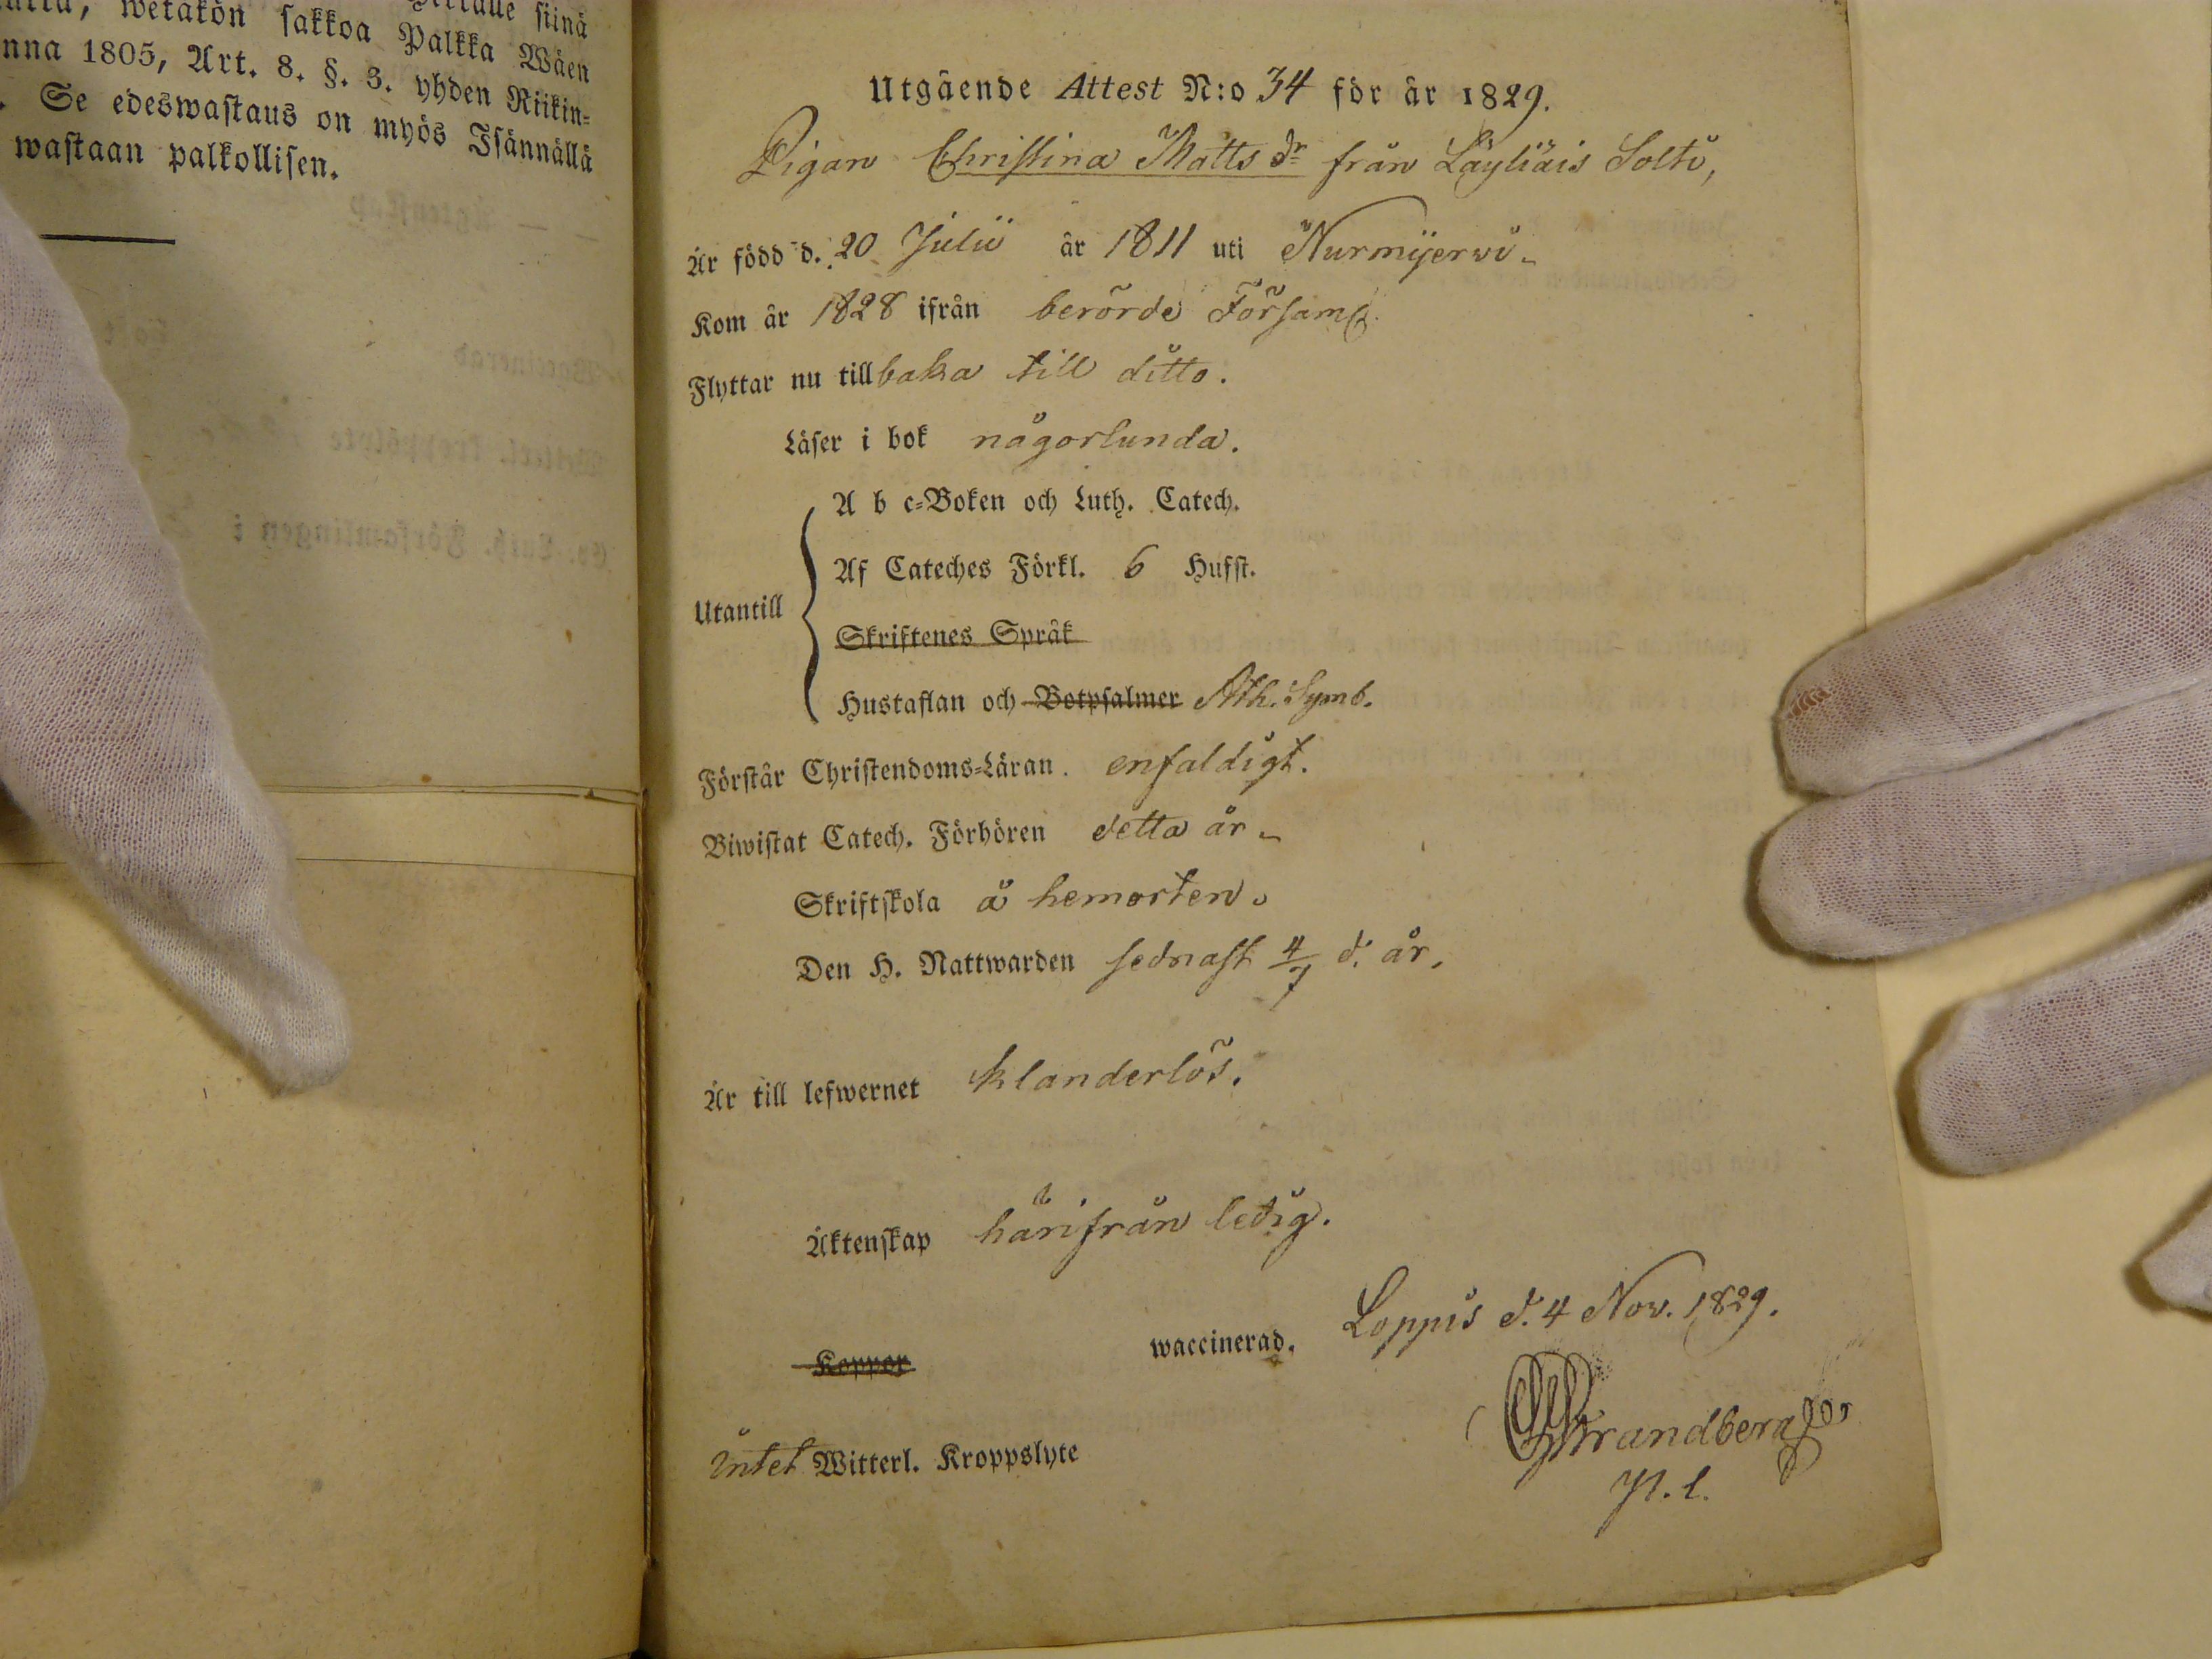 wetakön sakkoa Palkka Wäen
nna 1805, Art. 8. §. 3. yhden Riikin=
. Se edeswastaus on myös Isännällä
wastaan palkollisen.
Utgående Attest N:o 34 för år 1829.
Pigan Christina Matts dr från Läyliäis Solttï,
Är född d. 20 Julii år 1811 uti Nurmijervi
Kom år 1828 ifrån berörde Församl.
Flyttar nu tillbaka till ditto.
Läser i bok någorlunda.
A b c=Boken och Luth. Catech.
Utantill
Af Cateches Förkl. 6 Hufst.
Skriftenes Språk
Hustaflan och Botpsalmer Ath. Symb.
Förstår Christendoms=Läran. enfaldigt.
Biwistat Catech. Förhören detta år
Skriftskola å hemorten.
Den H. Nattwarden sednast 4/7 d. år.
Är till lefwernet klanderlös.
Äktenskap härifrån ledig.
Loppis d. 4 Nov. 1829.
Koppor waccinerad.
Strandberg
intet Witterl. Kroppslyte